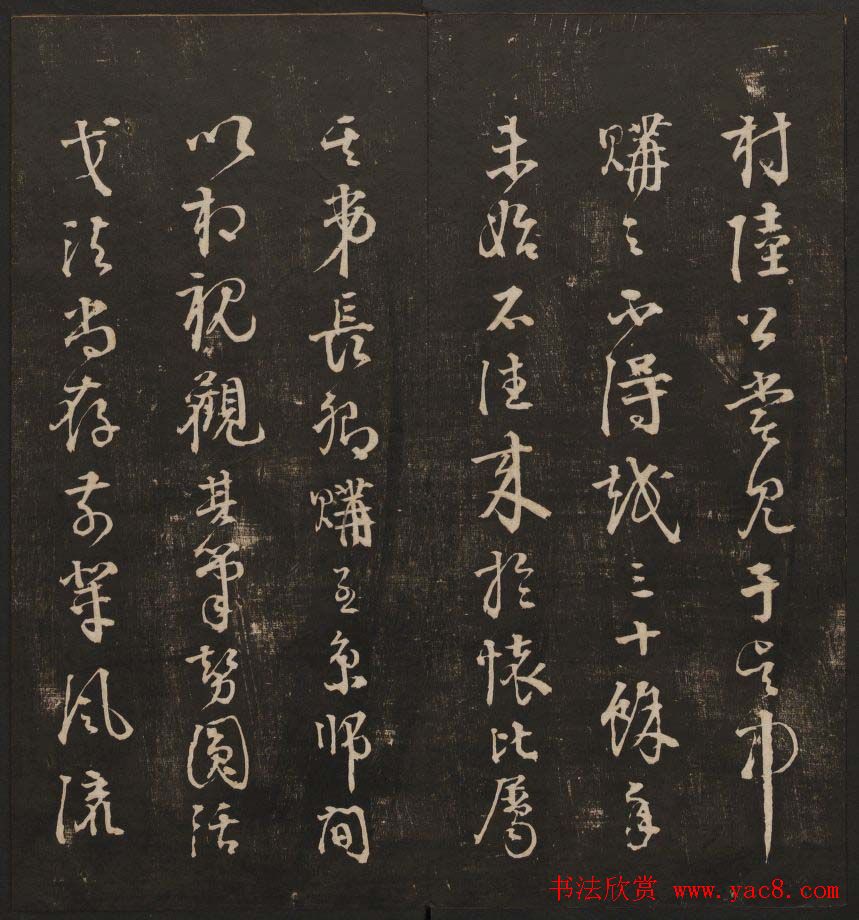 村陸公嘗見于吳中
購之不得越三十餘年
未始不往來於懷比屬
其弟長卿購至京師間
以相視觀其筆勢圓活
戈法尚存前輩風流
书法欣赏 www.yac8.com